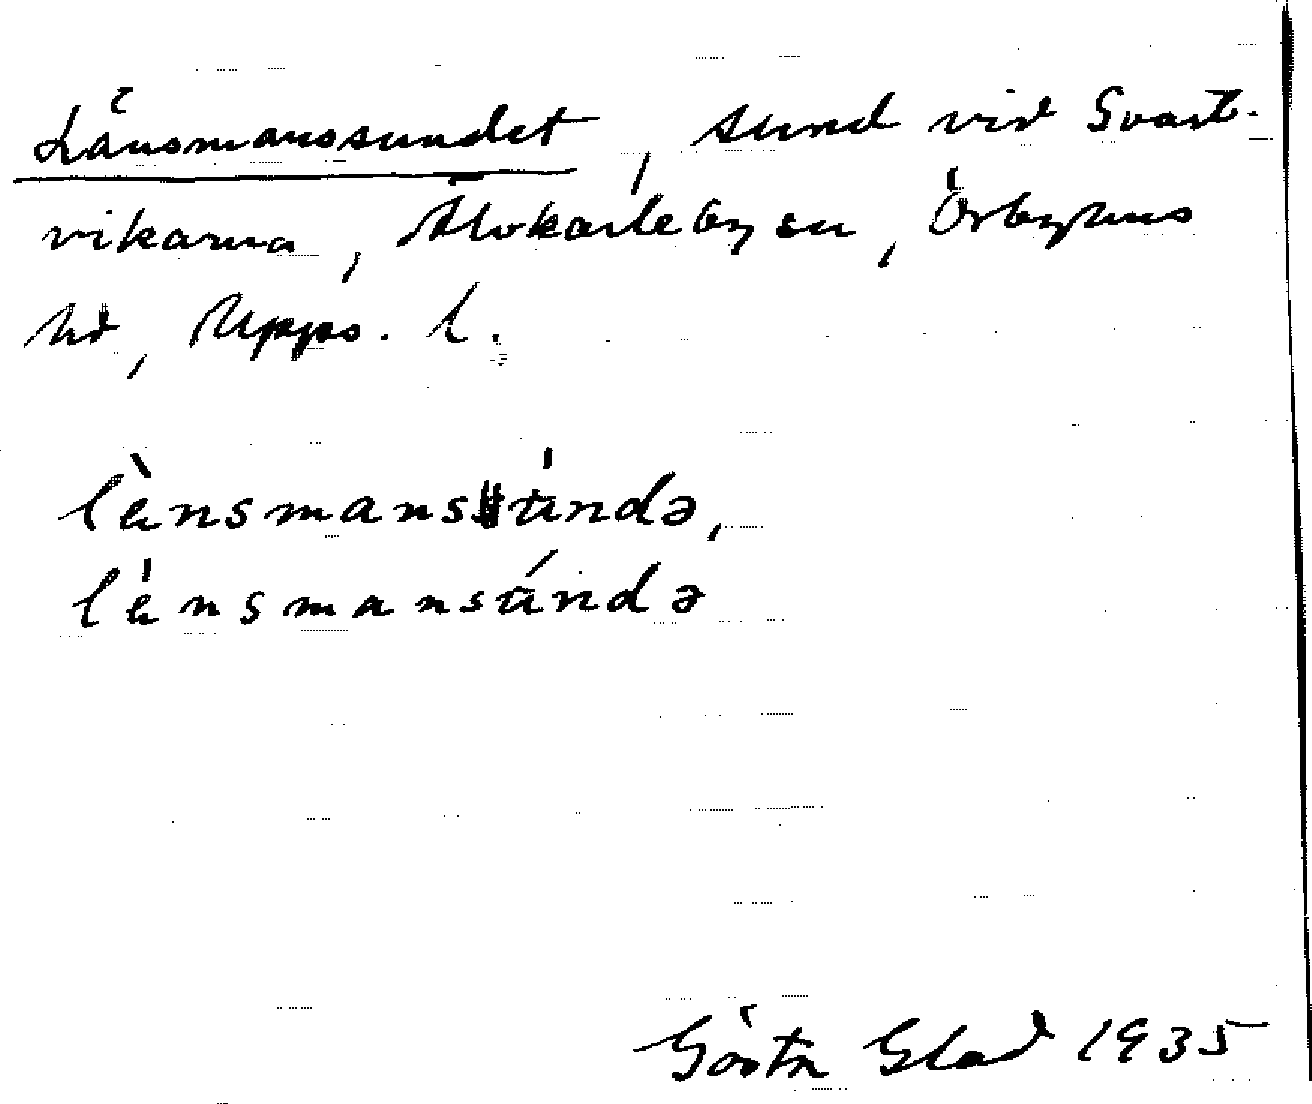 Länsmanssundet, sund vid Svart-
vikarna, Älvkarleby sn, Örbyhus
hd, Upps. l.
lènsmansùndə,
lènsmansúndə
Gösta Glad 1935